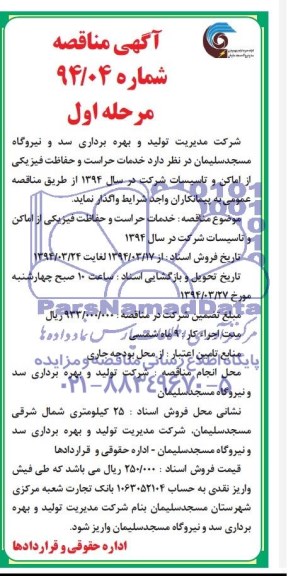 آگهی مناقصه
شماره ۹۴/۰۴
مرحله اول
شرکت مدیریت تولید و بهره برداری سد و نیروگاه
مسجدسلیمان در نظر دارد خدمات حراست و حفاظت فیزیکی
از اماکن و تاسیسات شرکت در سال ۱۳۹۴ از طریق مناقصه
عمومی به پیمانکاران واجد شرایط واگذار نماید.
موضوع مناقصه : خدمات حراست و حفاظت فیزیکی از اماکن
و تاسیسات شرکت در سال ۱۳۹۴
تاریخ فروش اسناد : از ۱۳۹۴/۰۳/۱۷ لغایت ۱۳۹۴/۰۳/۲۴
تاریخ تحویل و بازگشایی اسناد : ساعت ۱۰ صبح چهارشنبه
مورخ ۱۳۹۴/۰۳/۲۷
مبلغ تضمین شرکت در مناقصه : ۹۳۳/۰۰۰/۰۰۰ ریال
مدت اجراء کار : ۹ ماه شمسی
منابع تامین اعتبار : از محل بودجه جاری
محل انجام مناقصه : شرکت تولید و بهره برداری سد
و نیروگاه مسجدسلیمان
نشانی محل فروش اسناد : ۲۵ کیلومتری شمال شرقی
مسجدسلیمان، شرکت مدیریت تولید و بهره برداری سد
و نیروگاه مسجدسلیمان - اداره حقوقی و قراردادها
قیمت فروش اسناد : ۲۵۰/۰۰۰ ریال می باشد که طی فیش
واریز نقدی به حساب ۱۰۶۳۰۵۲۱۰۴ بانک تجارت شعبه مرکزی
شهرستان مسجدسلیمان بنام شرکت مدیریت تولید و بهره
برداری سد و نیروگاه مسجدسلیمان واریز شود.
اداره حقوقی و قراردادها
ParsNamadData
پایگاه اطلاع رسانی مناقصه و مزایده
۰۲۱-۸۸۳۴۹۶۷۰-۵